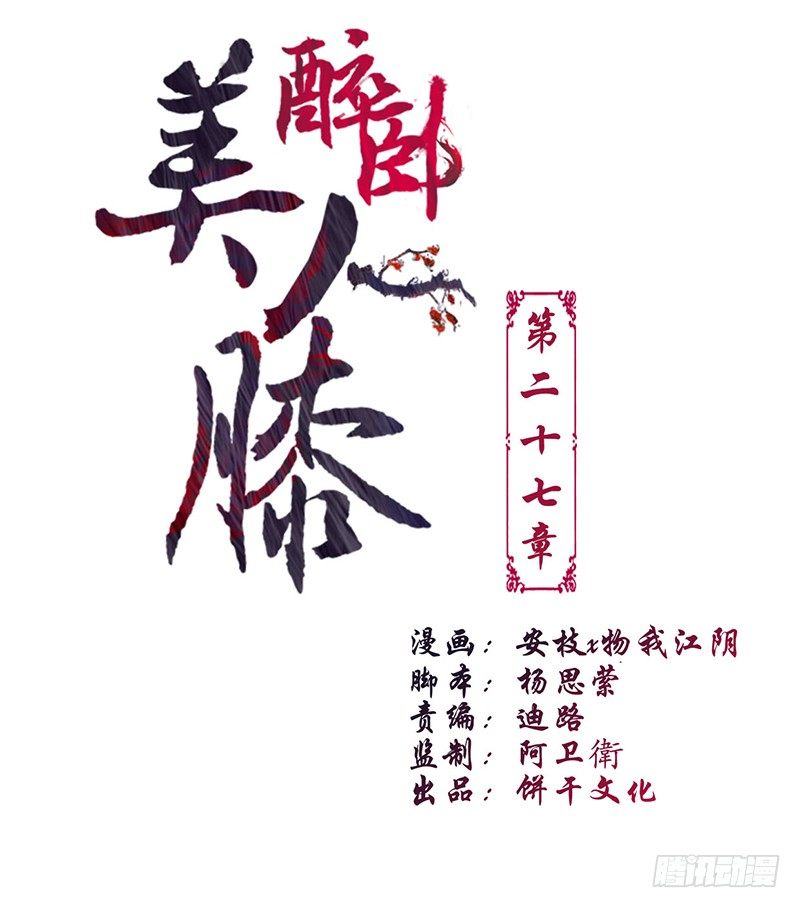 醉卧
美人膝
第二十七章
漫画：安枝x物我江阴
脚本：杨思萦
责编：迪路
监制：阿卫衛
出品：饼干文化
腾讯动漫